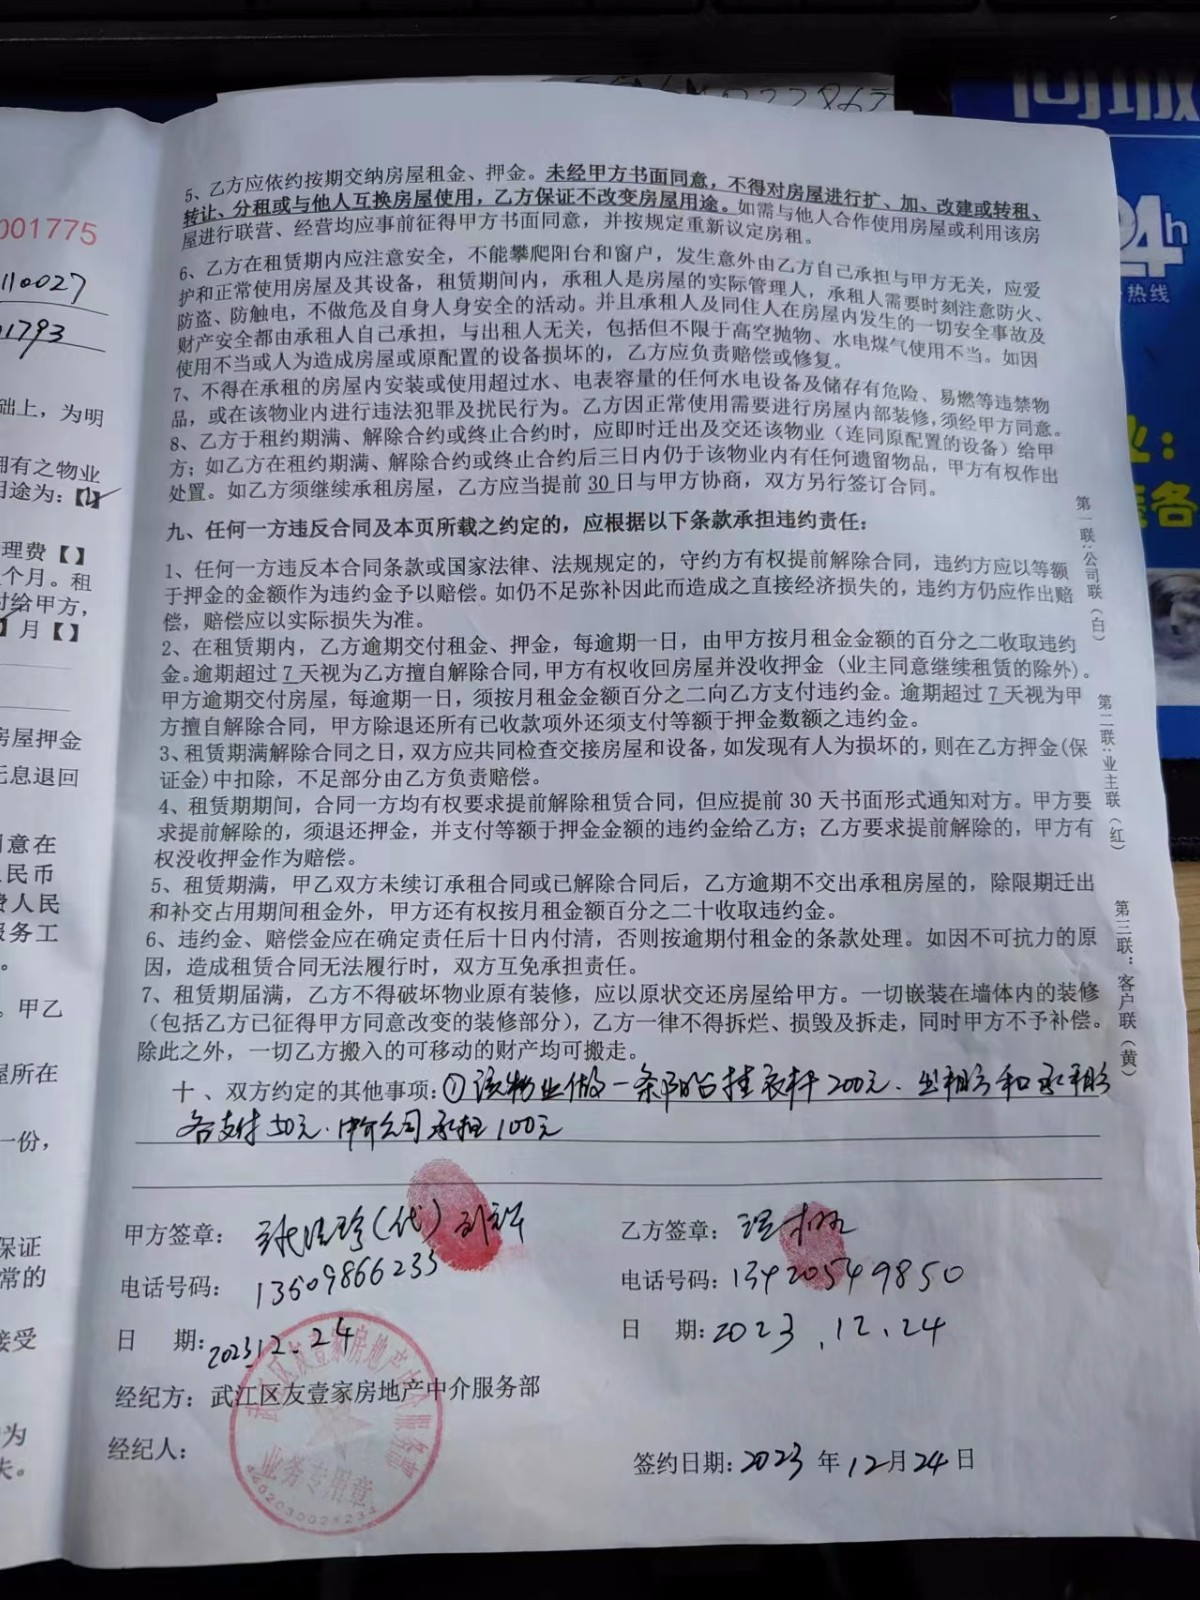 001775
110027
1793
础上，为明
拥有之物业
用途为：【】
理费【】
个月。租
付给甲方，
】月【】
房屋押金
无息退回
同意在
人民币
费人民
服务工
。
。甲乙
屋所在
一份，
保证
常的
接受
为
失。
5、乙方应依约按期交纳房屋租金、押金。未经甲方书面同意，不得对房屋进行扩、加、改建或转租、
转让、分租或与他人互换房屋使用，乙方保证不改变房屋用途。如需与他人合作使用房屋或利用该房
屋进行联营、经营均应事前征得甲方书面同意，并按规定重新议定房租。
6、乙方在租赁期内应注意安全，不能攀爬阳台和窗户，发生意外由乙方自己承担与甲方无关，应爱
护和正常使用房屋及其设备，租赁期间内，承租人是房屋的实际管理人，承租人需要时刻注意防火、
防盗、防触电，不做危及自身人身安全的活动。并且承租人及同住人在房屋内发生的一切安全事故及
财产安全都由承租人自己承担，与出租人无关，包括但不限于高空抛物、水电煤气使用不当。如因
使用不当或人为造成房屋或原配置的设备损坏的，乙方应负责赔偿或修复。
7、不得在承租的房屋内安装或使用超过水、电表容量的任何水电设备及储存有危险、易燃等违禁物
品，或在该物业内进行违法犯罪及扰民行为。乙方因正常使用需要进行房屋内部装修，须经甲方同意。
8、乙方于租约期满、解除合约或终止合约时，应即时迁出及交还该物业（连同原配置的设备）给甲
方；如乙方在租约期满、解除合约或终止合约后三日内仍于该物业内有任何遗留物品，甲方有权作出
处置。如乙方须继续承租房屋，乙方应当提前 30 日与甲方协商，双方另行签订合同。
九、任何一方违反合同及本页所载之约定的，应根据以下条款承担违约责任：
1、任何一方违反本合同条款或国家法律、法规规定的，守约方有权提前解除合同，违约方应以等额
于押金的金额作为违约金予以赔偿。如仍不足弥补因此而造成之直接经济损失的，违约方仍应作出赔
偿，赔偿应以实际损失为准。
2、在租赁期内，乙方逾期交付租金、押金，每逾期一日，由甲方按月租金金额的百分之二收取违约
金。逾期超过 7 天视为乙方擅自解除合同，甲方有权收回房屋并没收押金（业主同意继续租赁的除外）。
甲方逾期交付房屋，每逾期一日，须按月租金金额百分之二向乙方支付违约金。逾期超过 7 天视为甲
方擅自解除合同，甲方除退还所有已收款项外还须支付等额于押金数额之违约金。
3、租赁期满解除合同之日，双方应共同检查交接房屋和设备，如发现有人为损坏的，则在乙方押金(保
证金)中扣除，不足部分由乙方负责赔偿。
4、租赁期期间，合同一方均有权要求提前解除租赁合同，但应提前 30 天书面形式通知对方。甲方要
求提前解除的，须退还押金，并支付等额于押金金额的违约金给乙方；乙方要求提前解除的，甲方有
权没收押金作为赔偿。
5、租赁期满，甲乙双方未续订承租合同或已解除合同后，乙方逾期不交出承租房屋的，除限期迁出
和补交占用期间租金外，甲方还有权按月租金额百分之二十收取违约金。
6、违约金、赔偿金应在确定责任后十日内付清，否则按逾期付租金的条款处理。如因不可抗力的原
因，造成租赁合同无法履行时，双方互免承担责任。
7、租赁期届满，乙方不得破坏物业原有装修，应以原状交还房屋给甲方。一切嵌装在墙体内的装修
（包括乙方已征得甲方同意改变的装修部分），乙方一律不得拆烂、损毁及拆走，同时甲方不予补偿。
除此之外，一切乙方搬入的可移动的财产均可搬走。
十、双方约定的其他事项：①该物业做一条阳台挂衣杆200元．出租方和承租方
各支付50元．中介公司承担100元
甲方签章：（代）
电话号码：13509866233
日 期：2023.12.24
经纪方：武江区友壹家房地产中介服务部
经纪人：
乙方签章：
电话号码：13420549850
日 期：2023.12.24
签约日期：2023 年 12月 24日
武江区友壹家房地产中介服务部
业务专用章
第一联：公司联（白）
第二联：业主联（红）
第三联：客户联（黄）
同城
24h
热线
业：
各